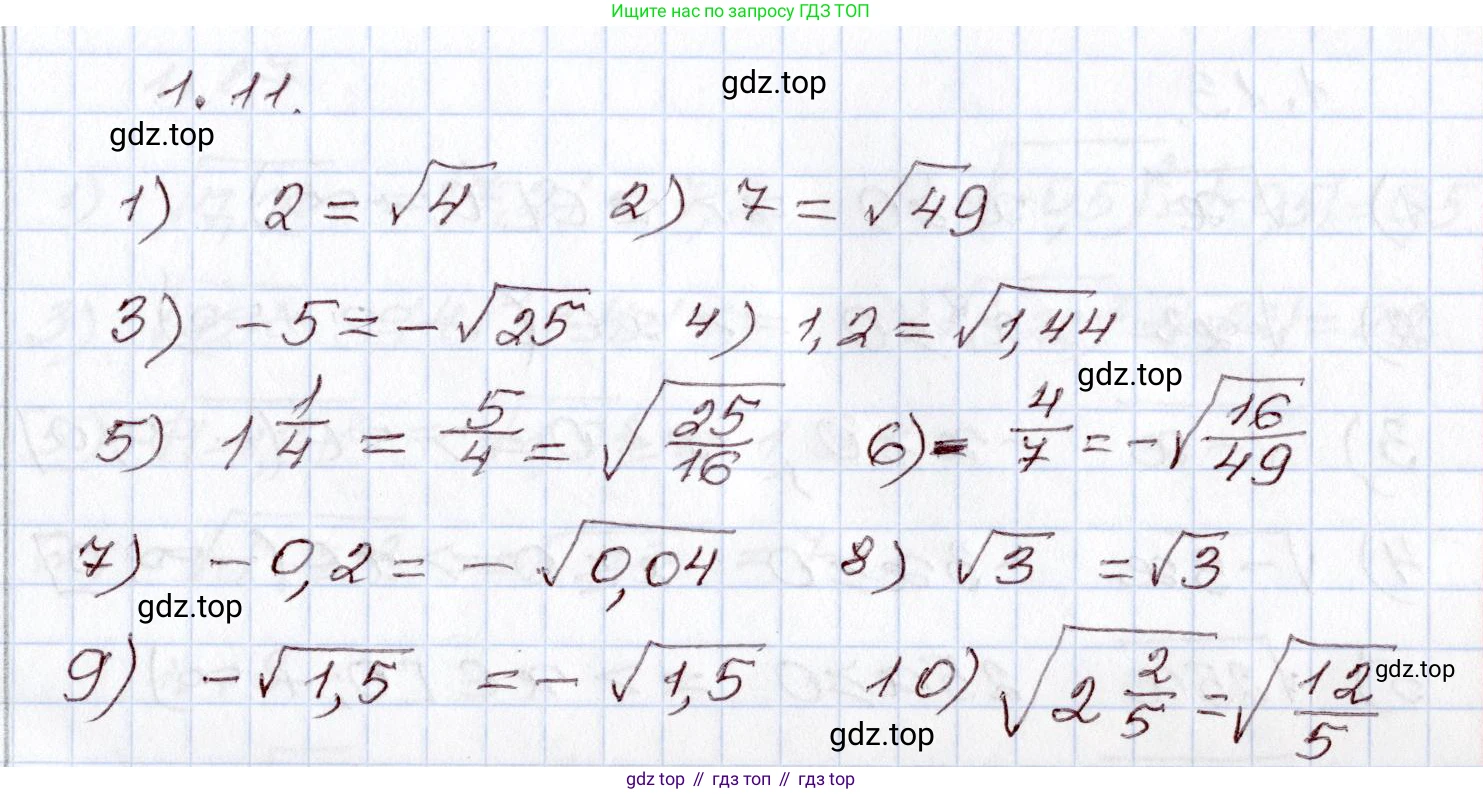 Ищите нас по запросу ГДЗ ТОП
gdz.top
1.11.
gdz.top
1) 2 = √4 2) 7 = √49
3) -5 = -√25 4) 1,2 = √1,44
gdz.top
5) 1 1/4 = 5/4 = √25/16 6) - 4/7 = -√16/49
7) -0,2 = -√0,04 8) √3 = √3
gdz.top
9) -√1,5 = -√1,5 10) √2 2/5 = √12/5
gdz.top
gdz.top
gdz top // гдз топ // gdz top